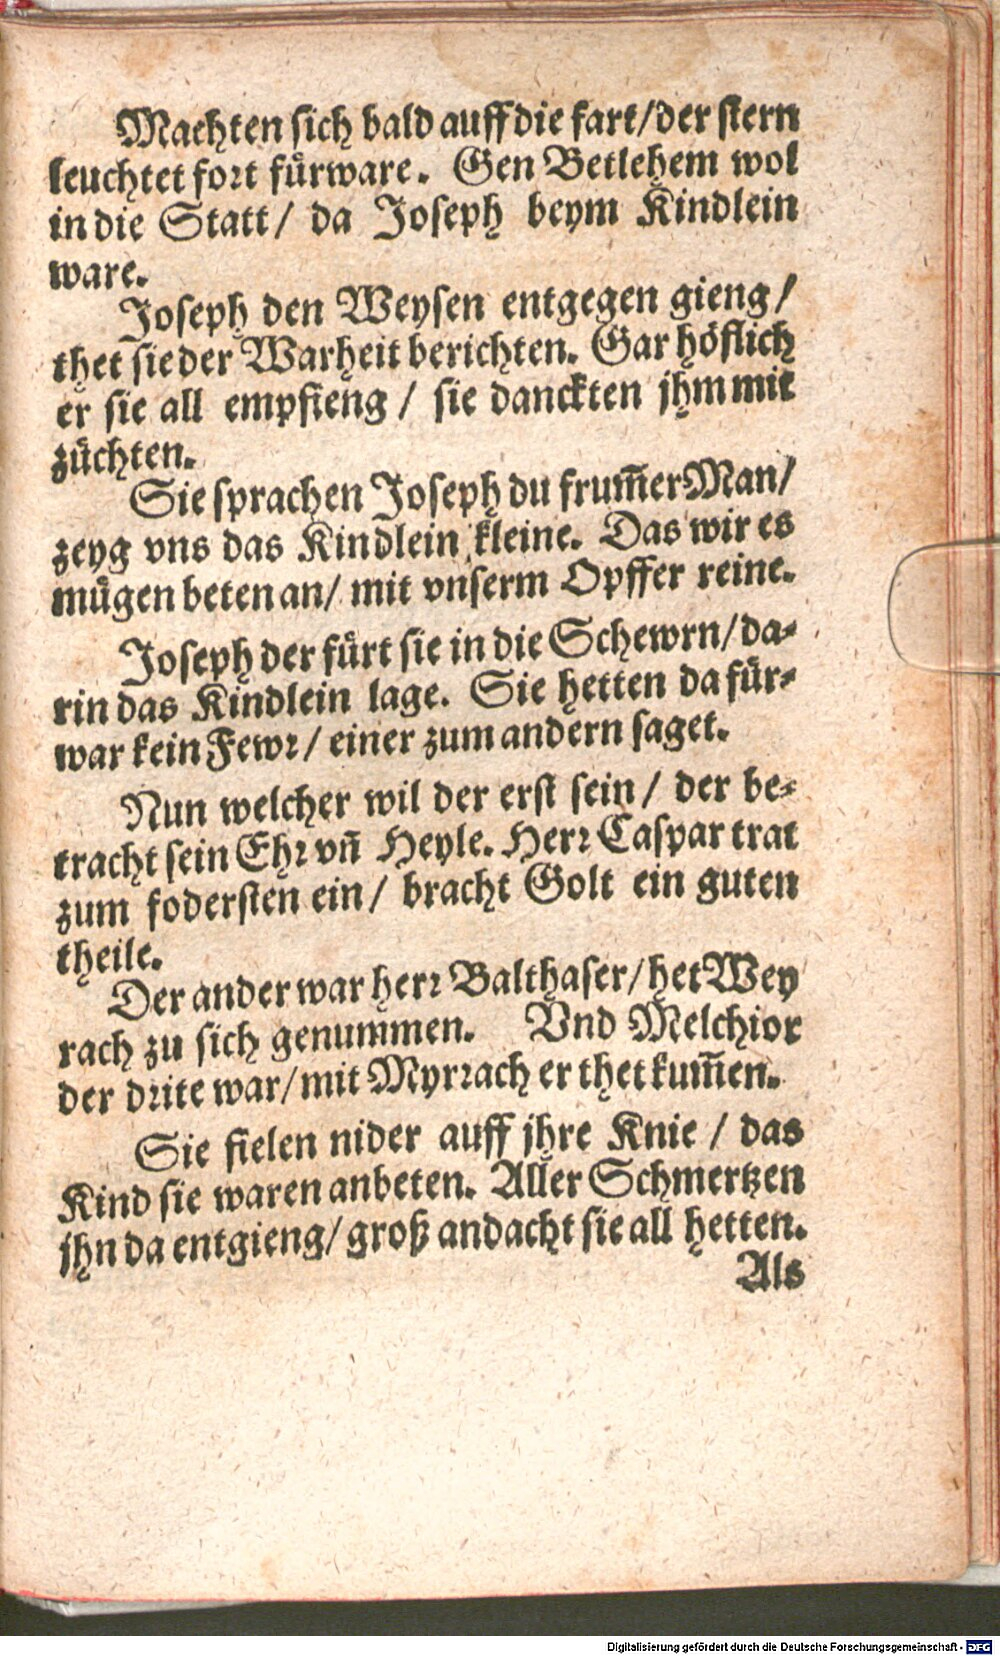 Machten sich bald auff die fart/der stern
leuchtet fort fürware. Gen Betlehem wol
in die Statt/ da Joseph beym Kindlein
ware.
Joseph den Weysen entgegen gieng/
thet sie der Warheit berichten. Gar höflich
er sie all empfieng / sie danckten jhm mit
züchten.
Sie sprachen Joseph du frum̃er Man/
zeyg vns das Kindlein kleine. Das wir es
mügen beten an/ mit vnserm Opffer reine.
Joseph der fürt sie in die Schewrn/da-
rin das Kindlein lage. Sie hetten da für-
war kein Fewr/ einer zum andern saget.
Nun welcher wil der erst sein/ der be-
tracht sein Ehr vñ Heyle. Herr Caspar trat
zum fodersten ein/ bracht Golt ein guten
theile.
Der ander war herr Balthaser/het Wey
rach zu sich genummen. Vnd Melchior
der drite war/mit Myrrach er thet kum̃en.
Sie fielen nider auff jhre Knie / das
Kind sie waren anbeten. Aller Schmertzen
jhn da entgieng/ groß andacht sie all hetten.
Als
Digitalisierung gefördert durch die Deutsche Forschungsgemeinschaft - DFG